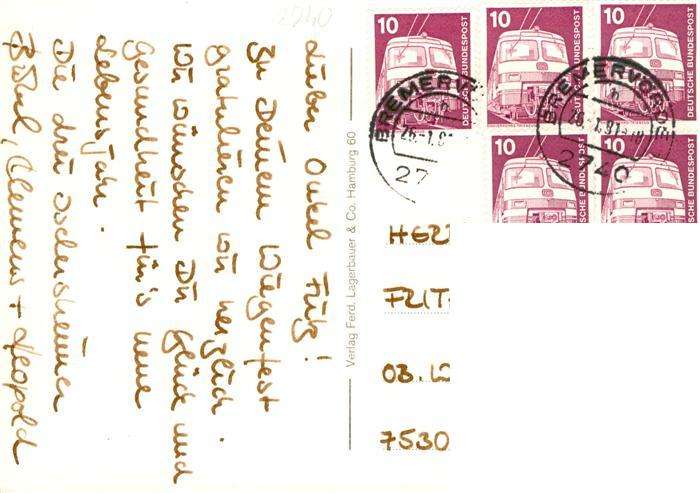 2740
Lieber Onkel Fritz!
Zu Deinem Wiegenfest
gratulieren wir herzlich.
Wir wünschen Dir Glück und
Gesundheit für's neue
Lebensjahr.
Die drei
Clemens + Leopold
Verlag Ferd. Lagerbauer & Co. Hamburg 60
10 DEUTSCHE BUNDESPOST
10 DEUTSCHE BUNDESPOST
10 DEUTSCHE BUNDESPOST
10 DEUTSCHE BUNDESPOST
10 DEUTSCHE BUNDESPOST
BREMERV
27
BREMERVÖRDE
2740
HER
FRIT
OB.
7530